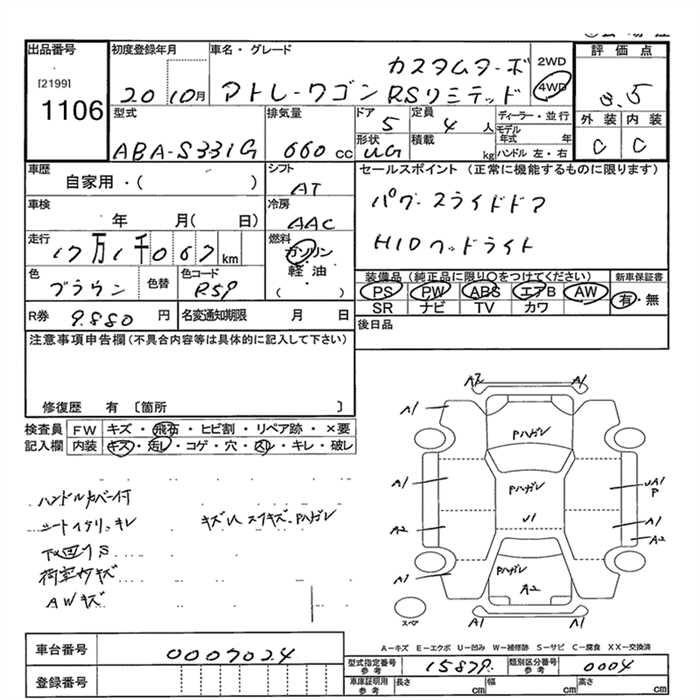 出品番号 初度登録年月 車名・グレード カスタムターボ 2WD 評価点
[2199] 1106 20 10月 アトレーワゴン RSリミテッド 4WD 3.5
型式 排気量 ドア 定員 ディーラー・並行 外装 内装
ABA-S331G 660cc 5 4人 モデル年式 年 C C
形状 積載 ハンドル 左・右
UG kg
車歴 シフト セールスポイント (正常に機能するものに限ります)
自家用・( ) AT
車検 冷房 パワースライドドア
年 月( 日) AAC
走行 燃料 HIDヘッドライト
17万1千067km ガソリン・軽油・( )
色 色替 色コード 装備品 (純正品に限り○をつけてください) 新車保証書
ブラウン R59 PS PW ABS エアB AW 有・無
SR ナビ TV カワ
R券 9.880円 名変通知期限 月 日 後日品
注意事項申告欄(不具合内容等は具体的に記入して下さい)
修復歴 有 〔箇所 〕
検査員 FW キズ・飛石・ヒビ割・リペア跡・×要
記入欄 内装 キズ・汚レ・コゲ・穴・スレ・キレ・破レ
ハンドルカバー付
シート キレ キズU Pハガレ
下回りS
荷室内キズ
AWキズ
A2 A1
A1 A1
Pハガレ
A1 Pハガレ UA1
P
A2 U1 A1
A2
A1 Pハガレ A1
A2
スペア A1 A1
A－キズ E－エクボ U－凹み W－補修跡 S－サビ C－腐食 XX－交換済
車台番号 0007024
型式指定番号 参考 15879 類別区分番号 参考 0004
登録番号 車庫証明用 参考 長さ cm 幅 cm 高さ cm